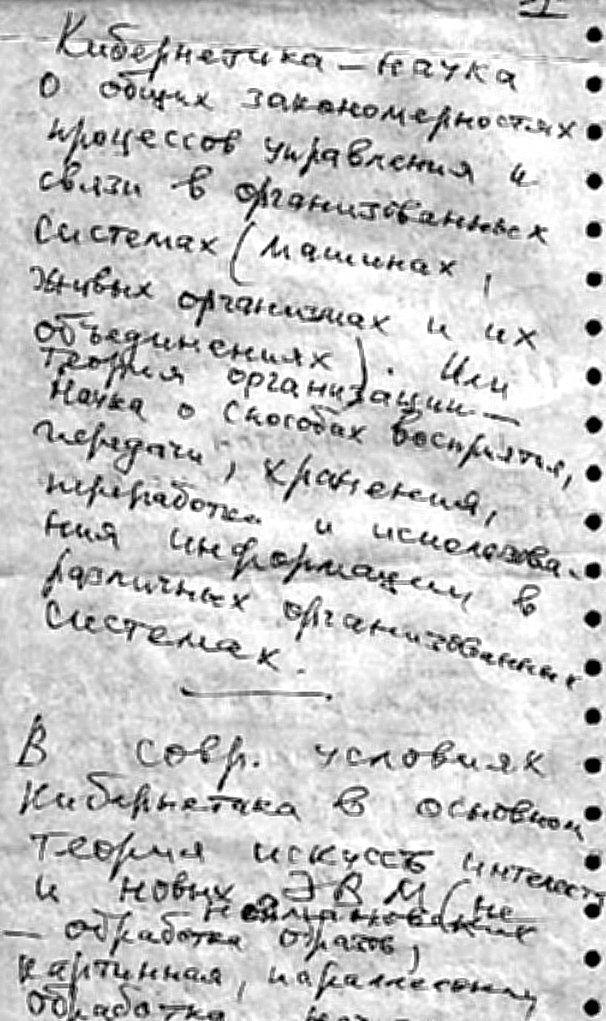 1
Кибернетика – наука
о общих закономерностях
процессов управления и
связи в организованных
системах (машинах,
живых организмах и их
объединениях). Или
теория организации –
наука о способах восприятия,
передачи, хранения,
переработки и использова-
ния информации в
различных организованных
системах.
В совр. условиях
кибернетика в основном
теория искусств интеллекта
и новых ЭВМ (не
неймановских
– обработка образов,
картинная, параллельная
обработка